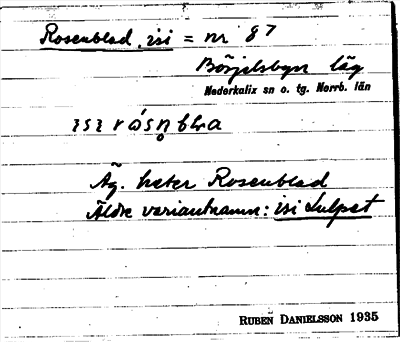 Rosenblad, isi = nr 87
Börjelsbyn läg
Nederkalix sn o. tg. Norrb. län
Äg. heter Rosenblad
Äldre variantnamn: isi Lulpat
RUBEN DANIELSSON 1935